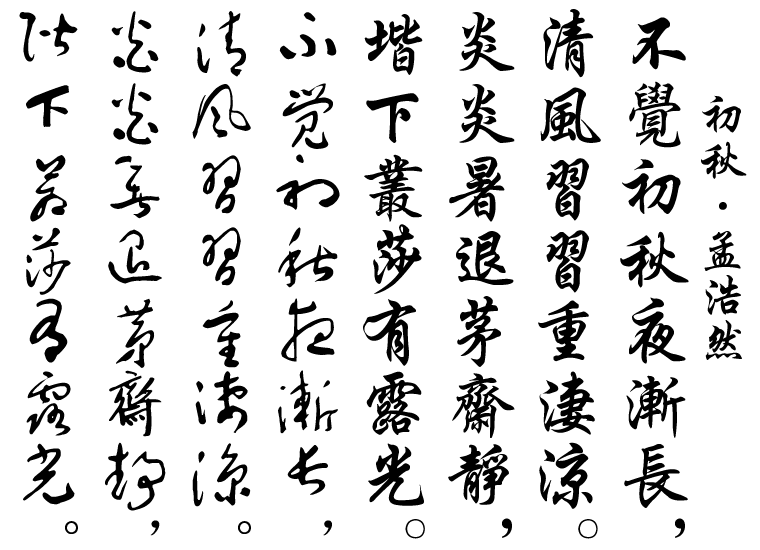 初秋・孟浩然
不覺初秋夜漸長，
清風習習重淒涼。
炎炎暑退茅齋靜，
堦下叢莎有露光。
不覺初秋夜漸長，
清風習習重淒涼。
炎炎暑退茅齋靜，
階下叢莎有露光。